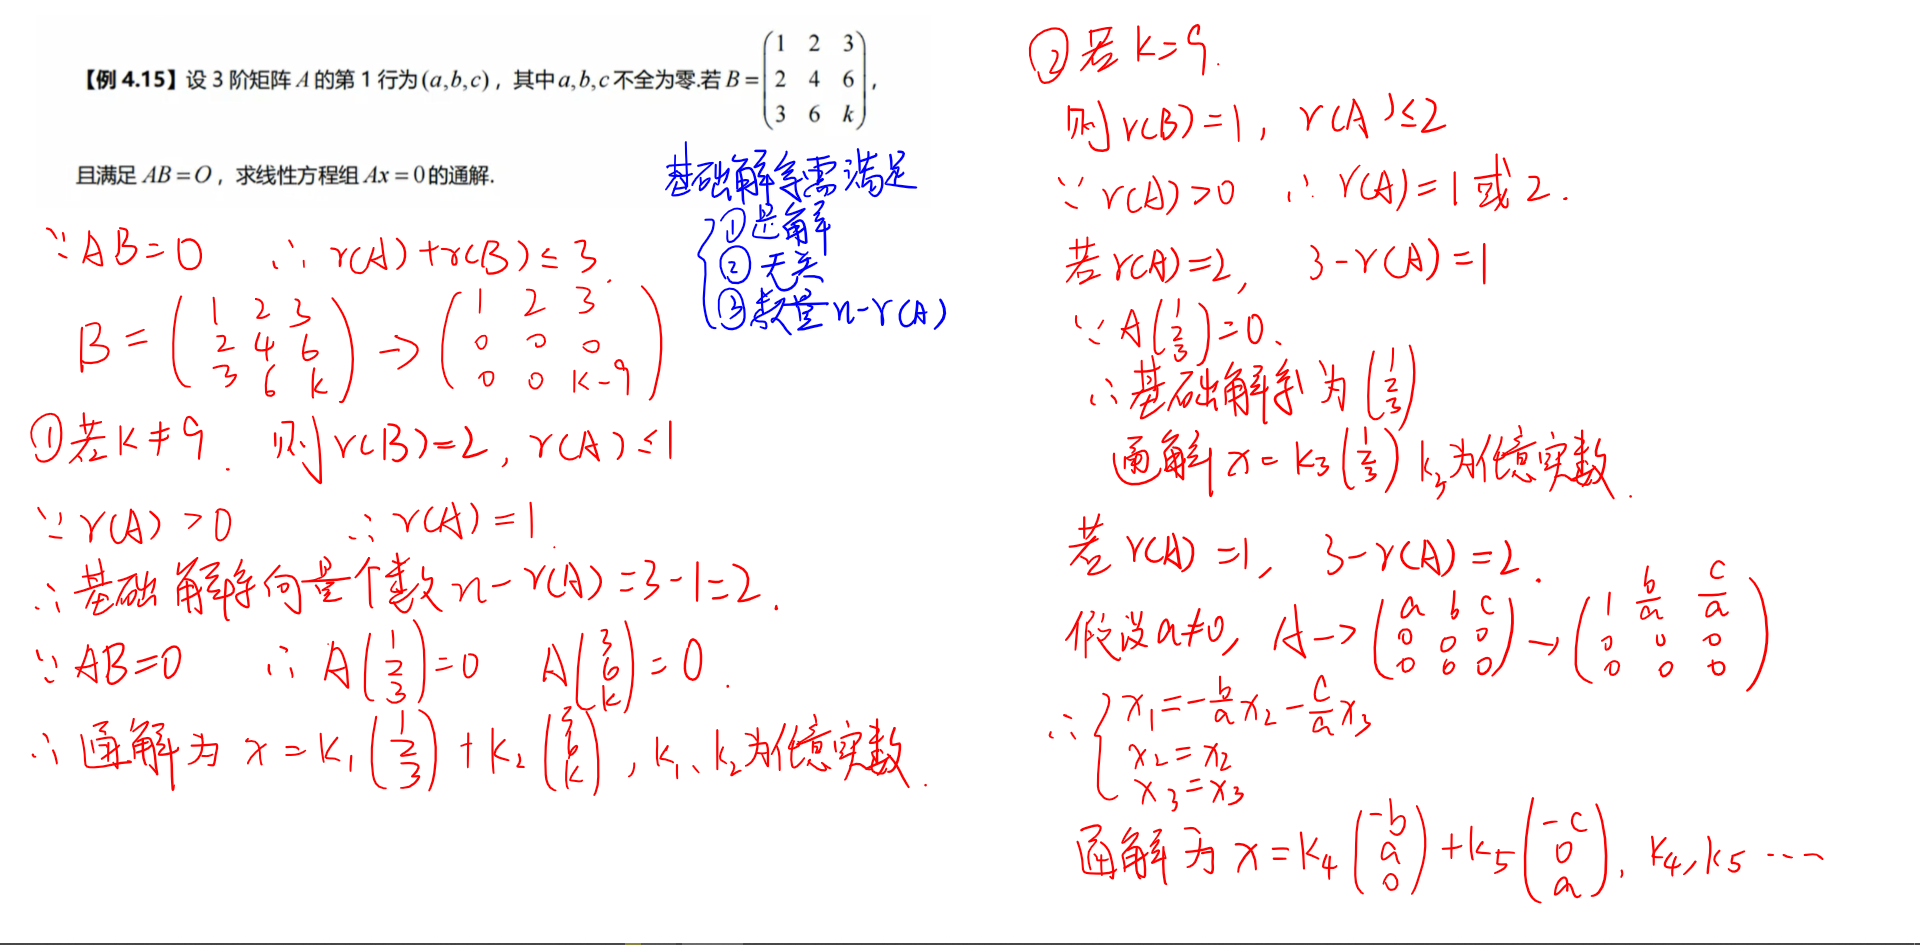 【例 4.15】设 3 阶矩阵 A 的第 1 行为 (a,b,c)，其中 a,b,c 不全为零.若 B = (1 2 3; 2 4 6; 3 6 k),
且满足 AB = O，求线性方程组 Ax = 0 的通解.
基础解系需满足
①是解
②无关
③数量 n-r(A)
∵ AB=0 ∴ r(A)+r(B)≤3.
B = (1 2 3; 2 4 6; 3 6 k) → (1 2 3; 0 0 0; 0 0 k-9)
①若 k≠9. 则 r(B)=2, r(A)≤1
∵ r(A)>0 ∴ r(A)=1.
∴ 基础解系向量个数 n-r(A)=3-1=2.
∵ AB=0 ∴ A(1; 2; 3)=0 A(3; 6; k)=0.
∴ 通解为 x=k₁(1; 2; 3)+k₂(3; 6; k), k₁、k₂为任意实数.
②若 k=9.
则 r(B)=1, r(A)≤2
∵ r(A)>0 ∴ r(A)=1或2.
若 r(A)=2, 3-r(A)=1
∵ A(1; 2; 3)=0.
∴ 基础解系为(1; 2; 3)
通解 x=k₃(1; 2; 3) k₃为任意实数.
若 r(A)=1, 3-r(A)=2.
假设 a≠0, A→(a b c; 0 0 0; 0 0 0)→(1 b/a c/a; 0 0 0; 0 0 0)
∴ { x₁=-b/a x₂-c/a x₃
x₂=x₂
x₃=x₃
通解为 x=k₄(-b; a; 0)+k₅(-c; 0; a), k₄,k₅ ···